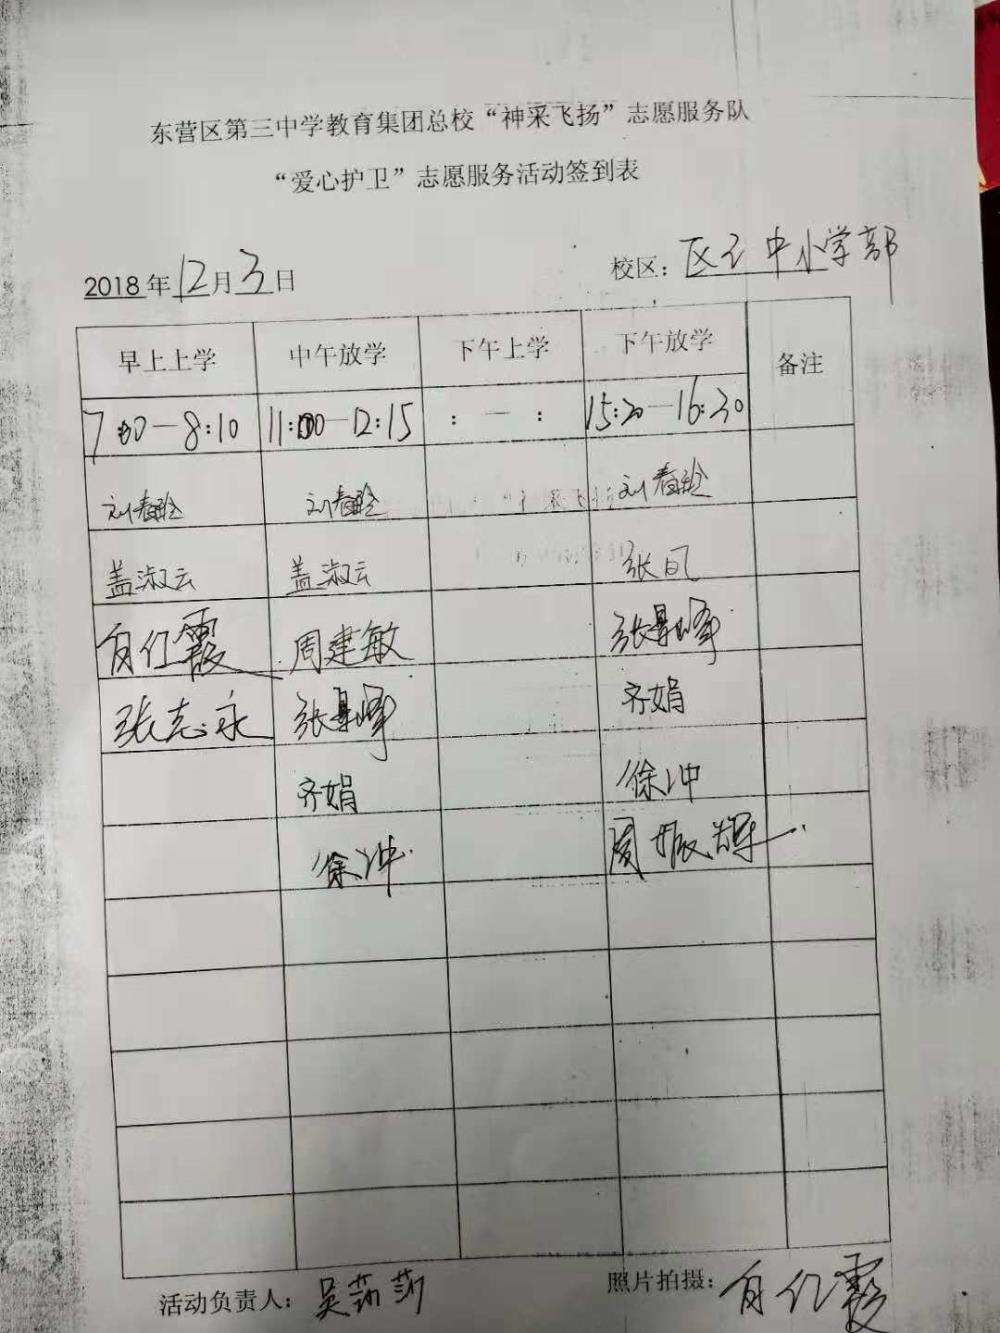 东营区第三中学教育集团总校“神采飞扬”志愿服务队
“爱心护卫”志愿服务活动签到表
2018年12月3日 校区：区三中小学部
早上上学 中午放学 下午上学 下午放学 备注
7:00—8:10 11:00—12:15 : — : 15:30—16:30
刘春玲 刘春玲 刘春玲
盖淑云 盖淑云 张凤
肖红霞 周建敏 张景峰
张志永 张景峰 齐娟
齐娟 徐冲
徐冲 周振辉
活动负责人：吴莎莎 照片拍摄：肖红霞